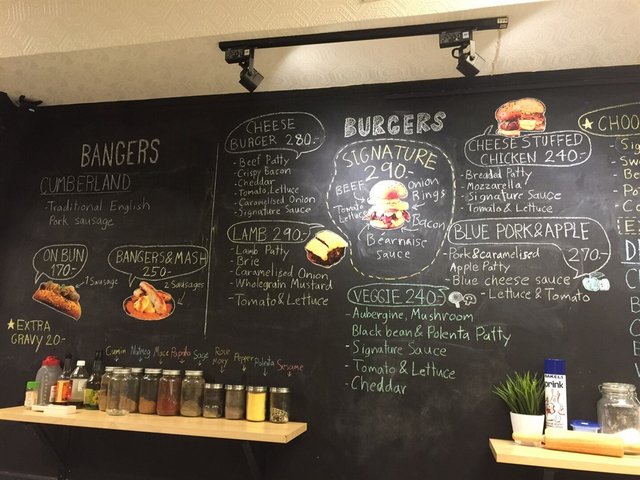 BANGERS
CUMBERLAND
- Traditional English
Pork sausage
ON BUN
170-
1 Sausage
BANGERS & MASH
250-
2 Sausages
★ EXTRA
GRAVY 20-
Cumin
Nutmeg
Mace
Paprika
Sage
Rosemary
Pepper
Polenta
Sesame
BURGERS
CHEESE
BURGER 280-
- Beef Patty
- Crispy Bacon
- Cheddar
- Tomato, Lettuce
- Caramelised Onion
- Signature Sauce
LAMB 290-
- Lamb Patty
- Brie
- Caramelised Onion
- Wholegrain Mustard
- Tomato & Lettuce
SIGNATURE
290-
BEEF
Onion
Rings
Tomato
Lettuce
Bacon
Bearnaise
sauce
VEGGIE 240-
- Aubergine, Mushroom
Black bean & Polenta Patty
- Signature Sauce
- Tomato & Lettuce
- Cheddar
CHEESE STUFFED
CHICKEN 240-
- Breaded Patty
- Mozzarella
- Signature Sauce
- Tomato & Lettuce
BLUE PORK & APPLE
270-
- Pork & caramelised
Apple Patty
- Blue cheese sauce
- Lettuce & Tomato
★ CHOO
Sig
Sw
Be
Po
C